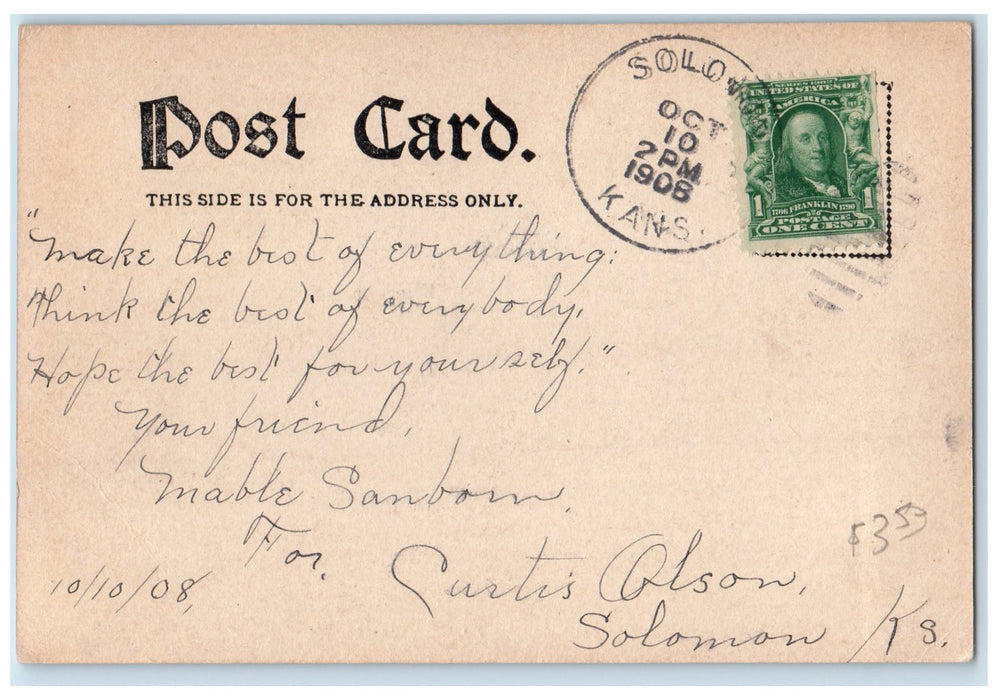 Post Card.
THIS SIDE IS FOR THE ADDRESS ONLY.
SOLOMON
OCT
10
2 PM
1908
KANS.
SERIES 1902
UNITED STATES OF
AMERICA
1706 FRANKLIN 1790
1 POSTAGE 1
ONE CENT
"Make the best of everything:
Think the best of everybody,
Hope the best for yourself."
Your friend,
Mable Sanborn.
For,
10/10/08,
Curtis Olson,
Solomon Ks.
$3.53